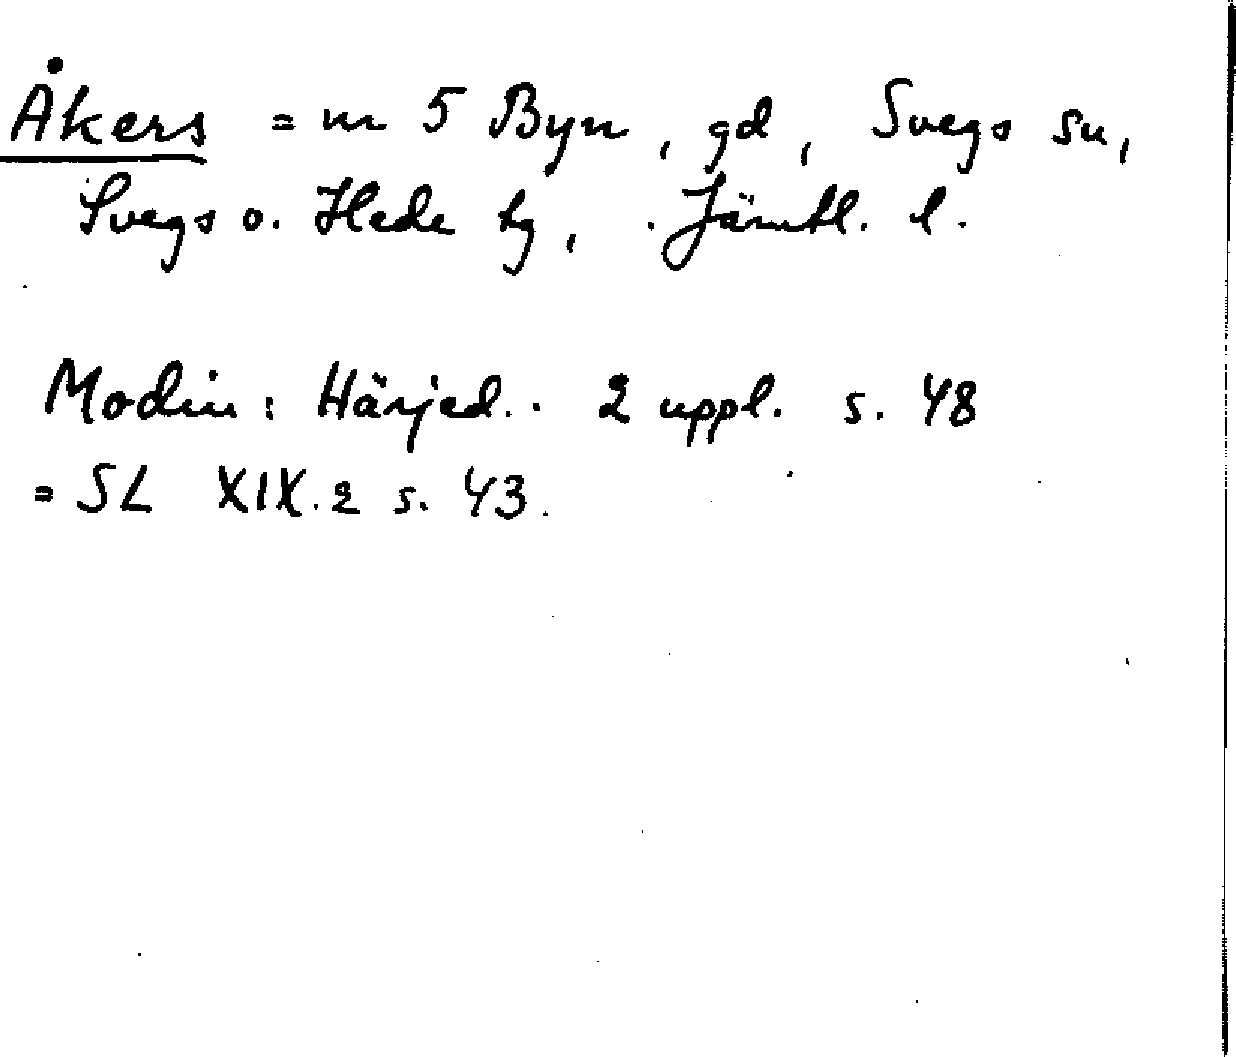 Åkers = nr 5 Byn, gd, Svegs sn,
Svegs o. Hede tg, Jämtl. l.
Modin: Härjed.. 2 uppl. s. 48
= SL XIX.2 s. 43.